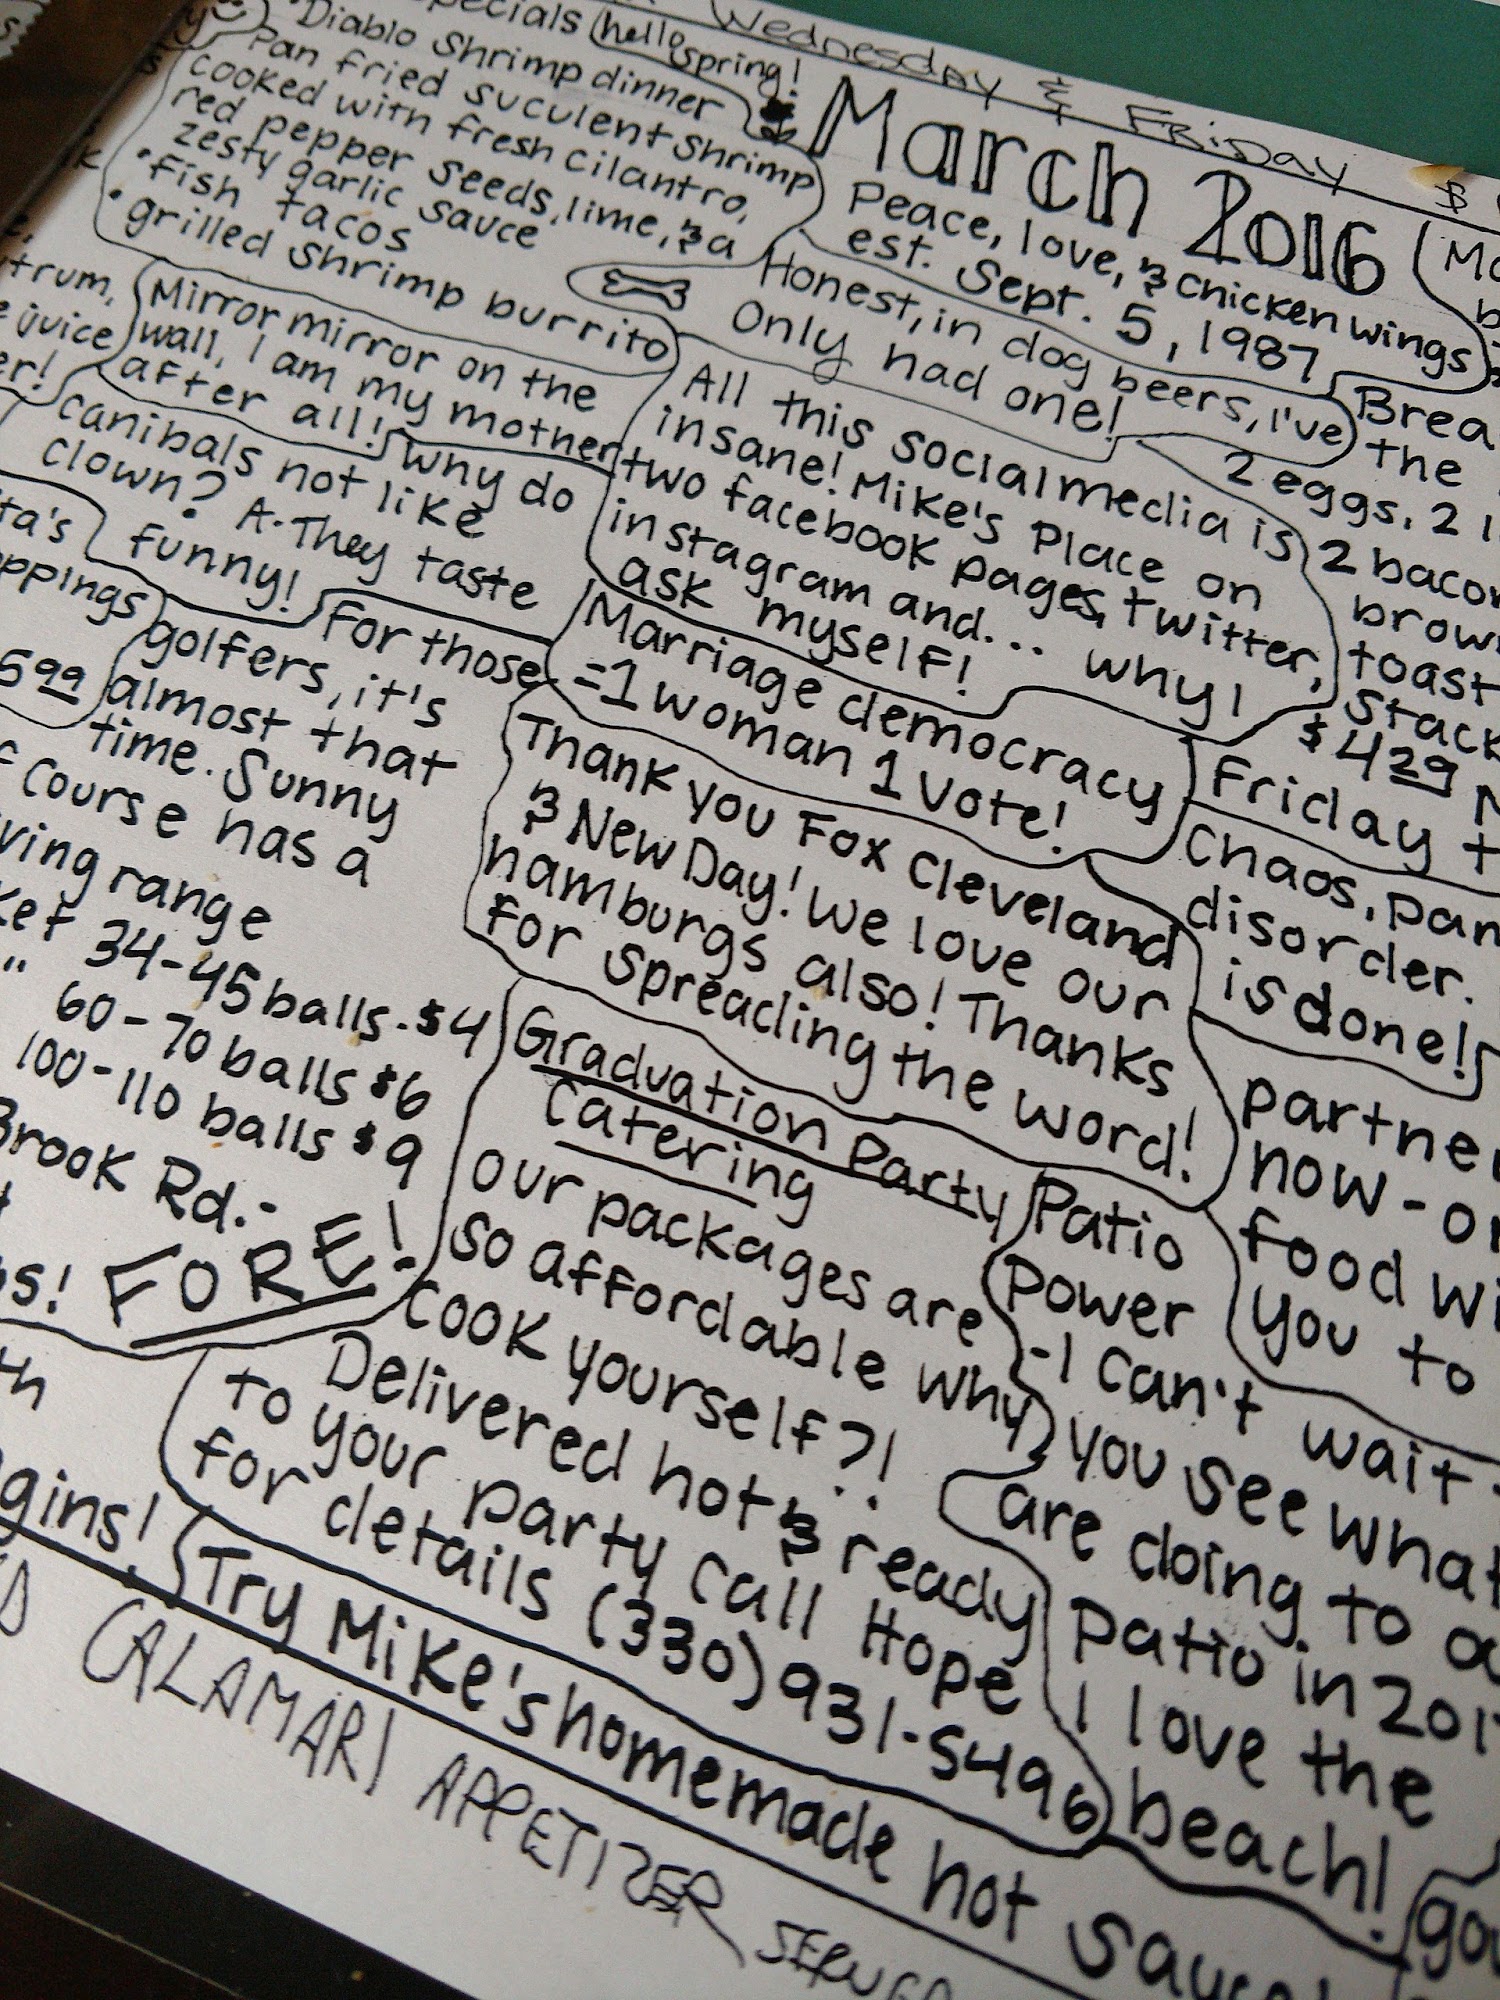 Wednesday & Friday $
specials
hello
spring!
• Diablo Shrimp dinner
Pan fried succulent shrimp
cooked with fresh cilantro,
red pepper seeds, lime, & a
zesty garlic sauce
• fish tacos
• grilled shrimp burrito
March 2016
Peace, love, & chicken wings
est. Sept. 5, 1987
Honest, in dog beers, I've
Only had one!
trum,
juice
er!
Mirror mirror on the
wall, I am my mother
after all!
All this social media is
insane! Mike's Place on
two facebook pages, twitter,
instagram and... why I
ask myself!
Brea
the
2 eggs, 2
2 bacon
brown
toast
Stack
$4 29
Why do
canibals not like
clown? A. They taste
funny!
ta's
ppings
5 99
Marriage democracy
=1 woman 1 vote!
Friday
Chaos, pan
disorder.
is done!
For those
golfers, it's
almost that
time. Sunny
course has a
ving range
ket 34-45 balls - $4
" 60-70 balls $6
100-110 balls $9
Brook Rd.-
s! FORE!
Thank you Fox Cleveland
& New Day! We love our
hamburgs also! Thanks
for spreading the word!
Graduation Party
Catering
Our packages are
so affordable why
cook yourself?!
Delivered hot & ready
to your party call Hope
for details (330) 931-5496
partner
now - or
food wi
you to
Patio
Power
- I can't wait
you see what
are doing to
patio in 201
I love the
beach!
th
gins!
Try Mike's homemade hot sauce!
CALAMARI APPETIZER